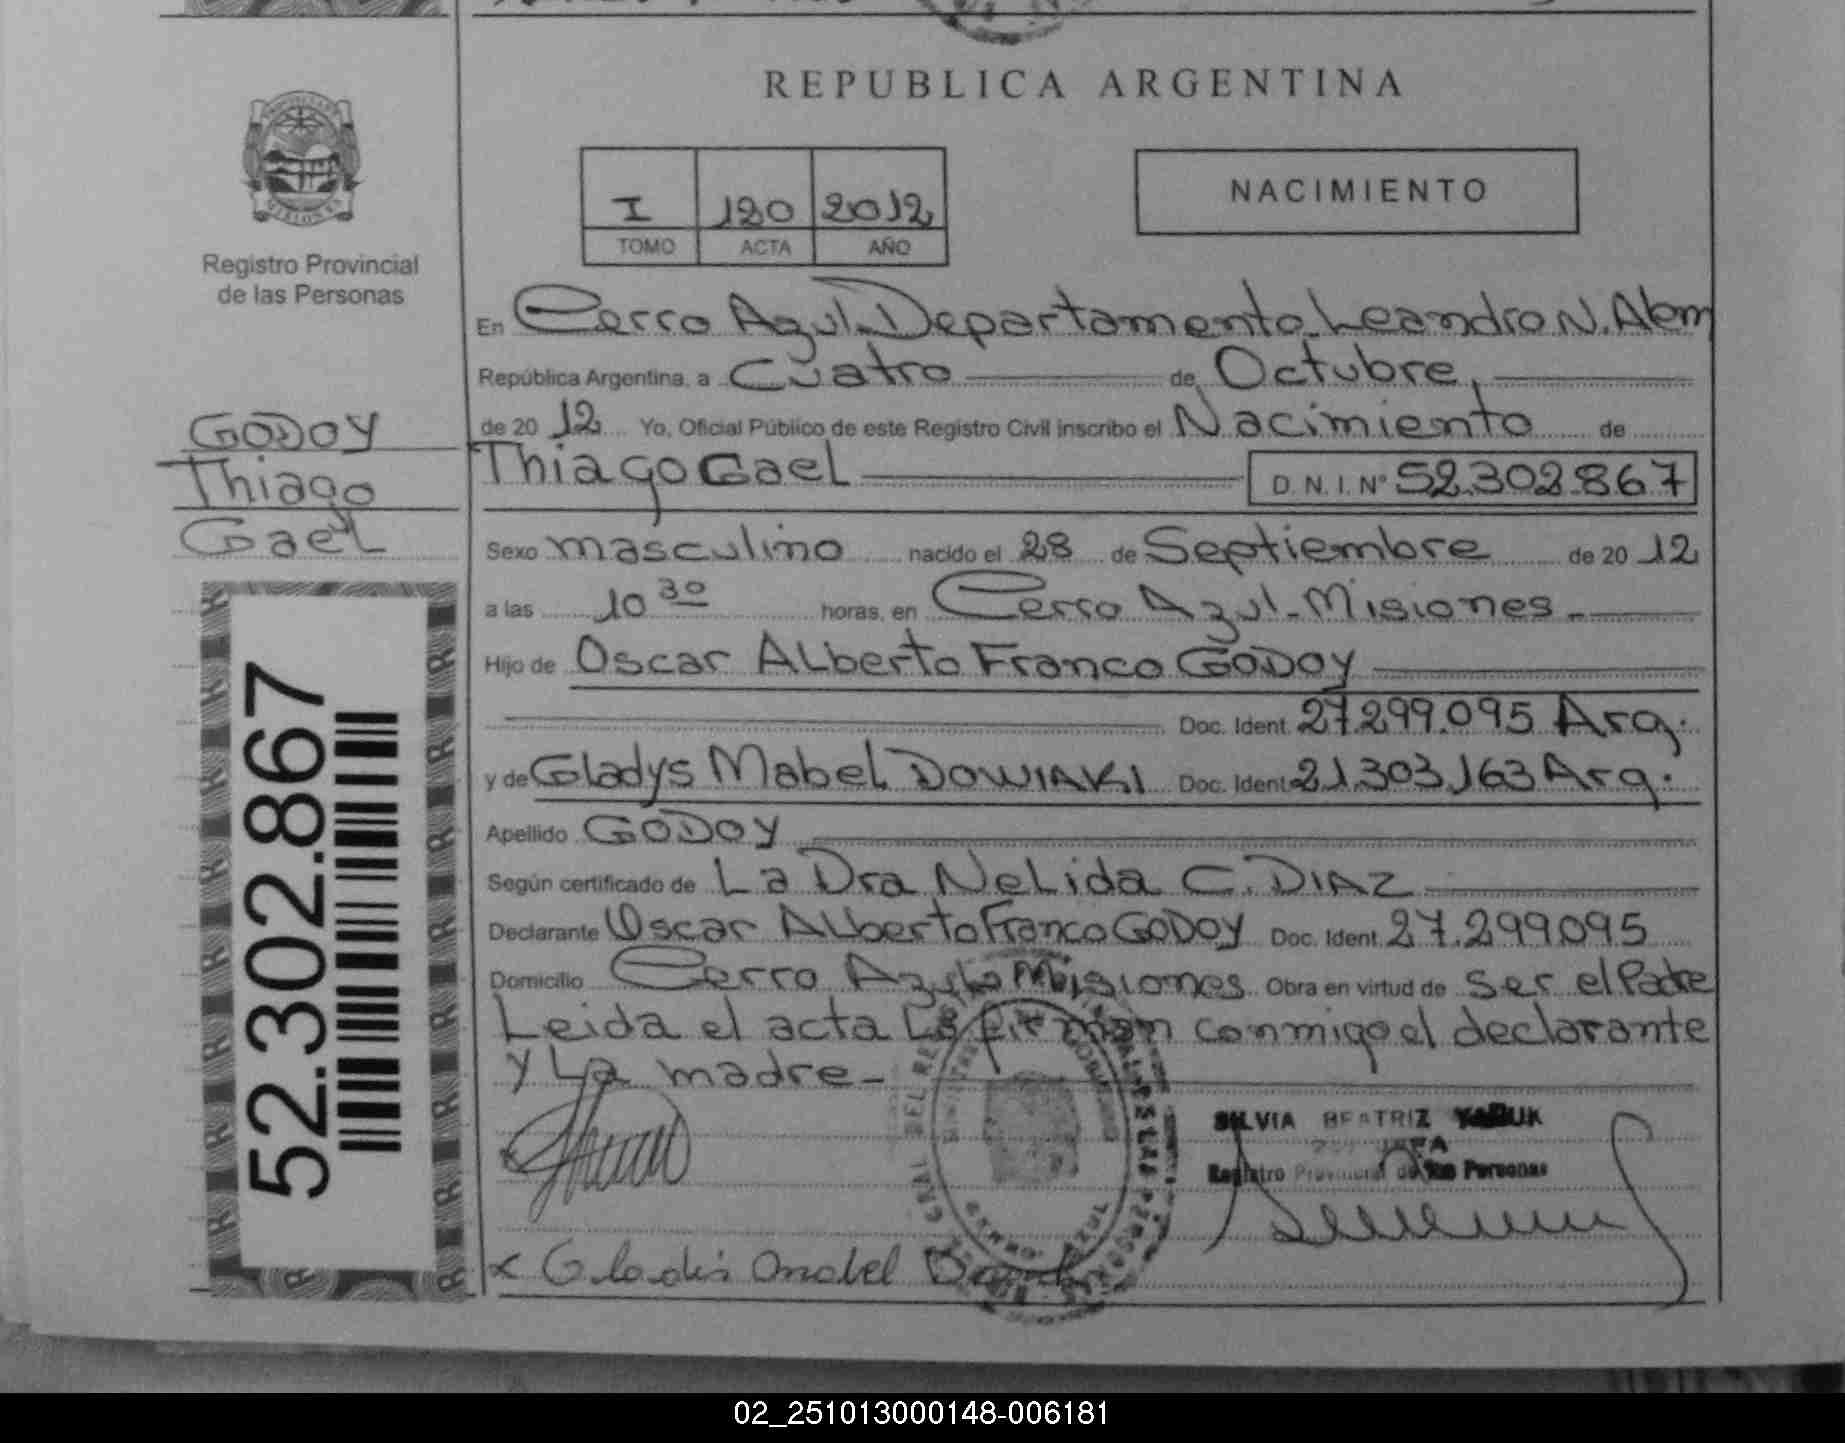 REPUBLICA ARGENTINA
I 120 2012
TOMO ACTA AÑO
NACIMIENTO
Registro Provincial
de las Personas
GODOY
Thiago
Gael
52.302.867
En Cerro Azul. Departamento Leandro N. Alem
República Argentina, a Cuatro de Octubre,
de 2012 Yo, Oficial Público de este Registro Civil inscribo el Nacimiento de
Thiago Gael D.N.I. Nº 52.302.867
Sexo masculino nacido el 28 de Septiembre de 2012
a las 10 30 horas, en Cerro Azul - Misiones -
Hijo de Oscar Alberto Franco GODOY
Doc. Ident. 27.299.095 Arg.
y de Gladys Mabel DOWIAKI Doc. Ident 21.303.163 Arg.
Apellido GODOY
Según certificado de La Dra Nelida C. DIAZ
Declarante Oscar Alberto Franco GODOY Doc. Ident. 27.299.095
Domicilio Cerro Azul - Misiones Obra en virtud de ser el Padre
Leida el acta la firman conmigo el declarante
y La madre -
SILVIA BEATRIZ
Registro Provincial de las Personas
02_251013000148-006181